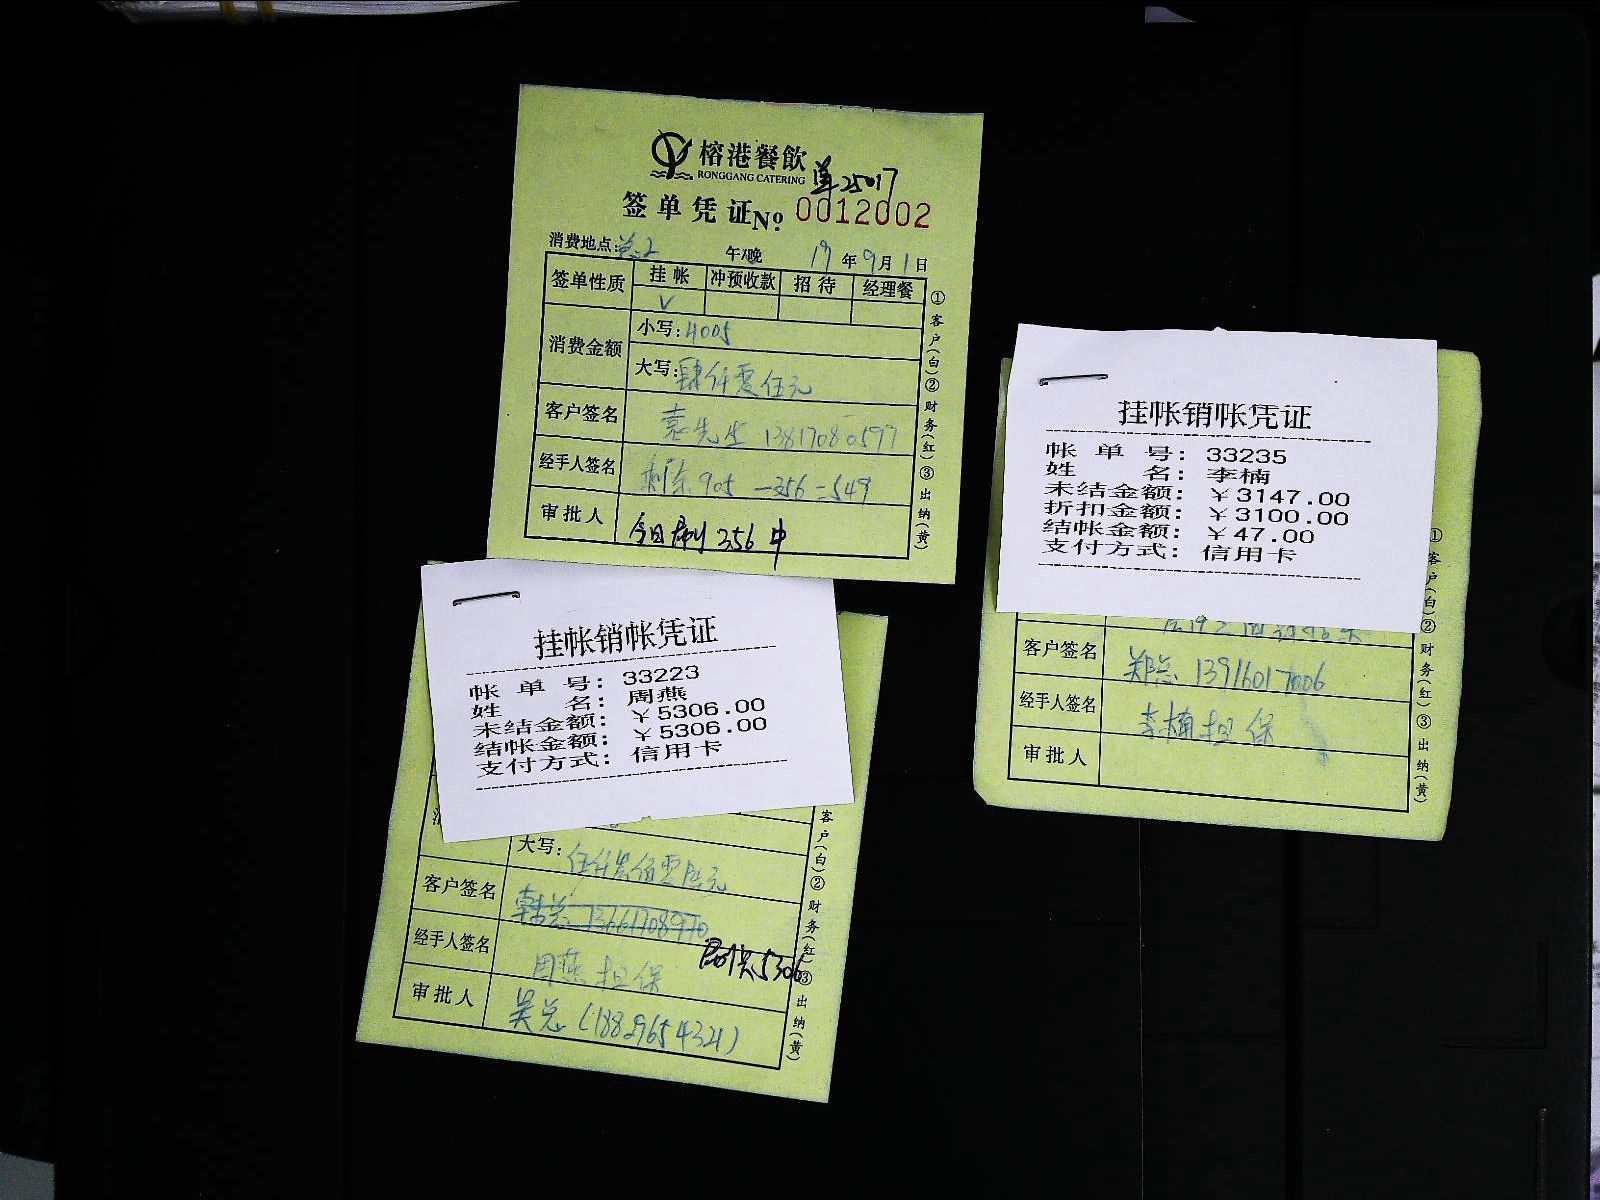 榕港餐飲
RONGGANG CATERING
单25017
签单凭证 № 0012002
消费地点: 午/晚 19年9月1日
签单性质 挂帐 冲预收款 招待 经理餐
√
消费金额 小写: 4005
大写: 肆仟零伍元
客户签名 袁先生 13817080597
经手人签名 剩余905-356=549
审批人 今日刷356中
①客户(白)②财务(红)③出纳(黄)
挂帐销帐凭证
帐单号: 33235
姓名: 李楠
未结金额: ¥3147.00
折扣金额: ¥3100.00
结帐金额: ¥47.00
支付方式: 信用卡
客户签名 郑总 13916017006
经手人签名 李楠担保
审批人
①客户(白)②财务(红)③出纳(黄)
挂帐销帐凭证
帐单号: 33223
姓名: 周燕
未结金额: ¥5306.00
结帐金额: ¥5306.00
支付方式: 信用卡
大写: 伍仟叁佰零陆元
客户签名 韩总 13661708970
经手人签名 周燕担保
5306
审批人 吴总 (18829654321)
客户(白)②财务(红)③出纳(黄)